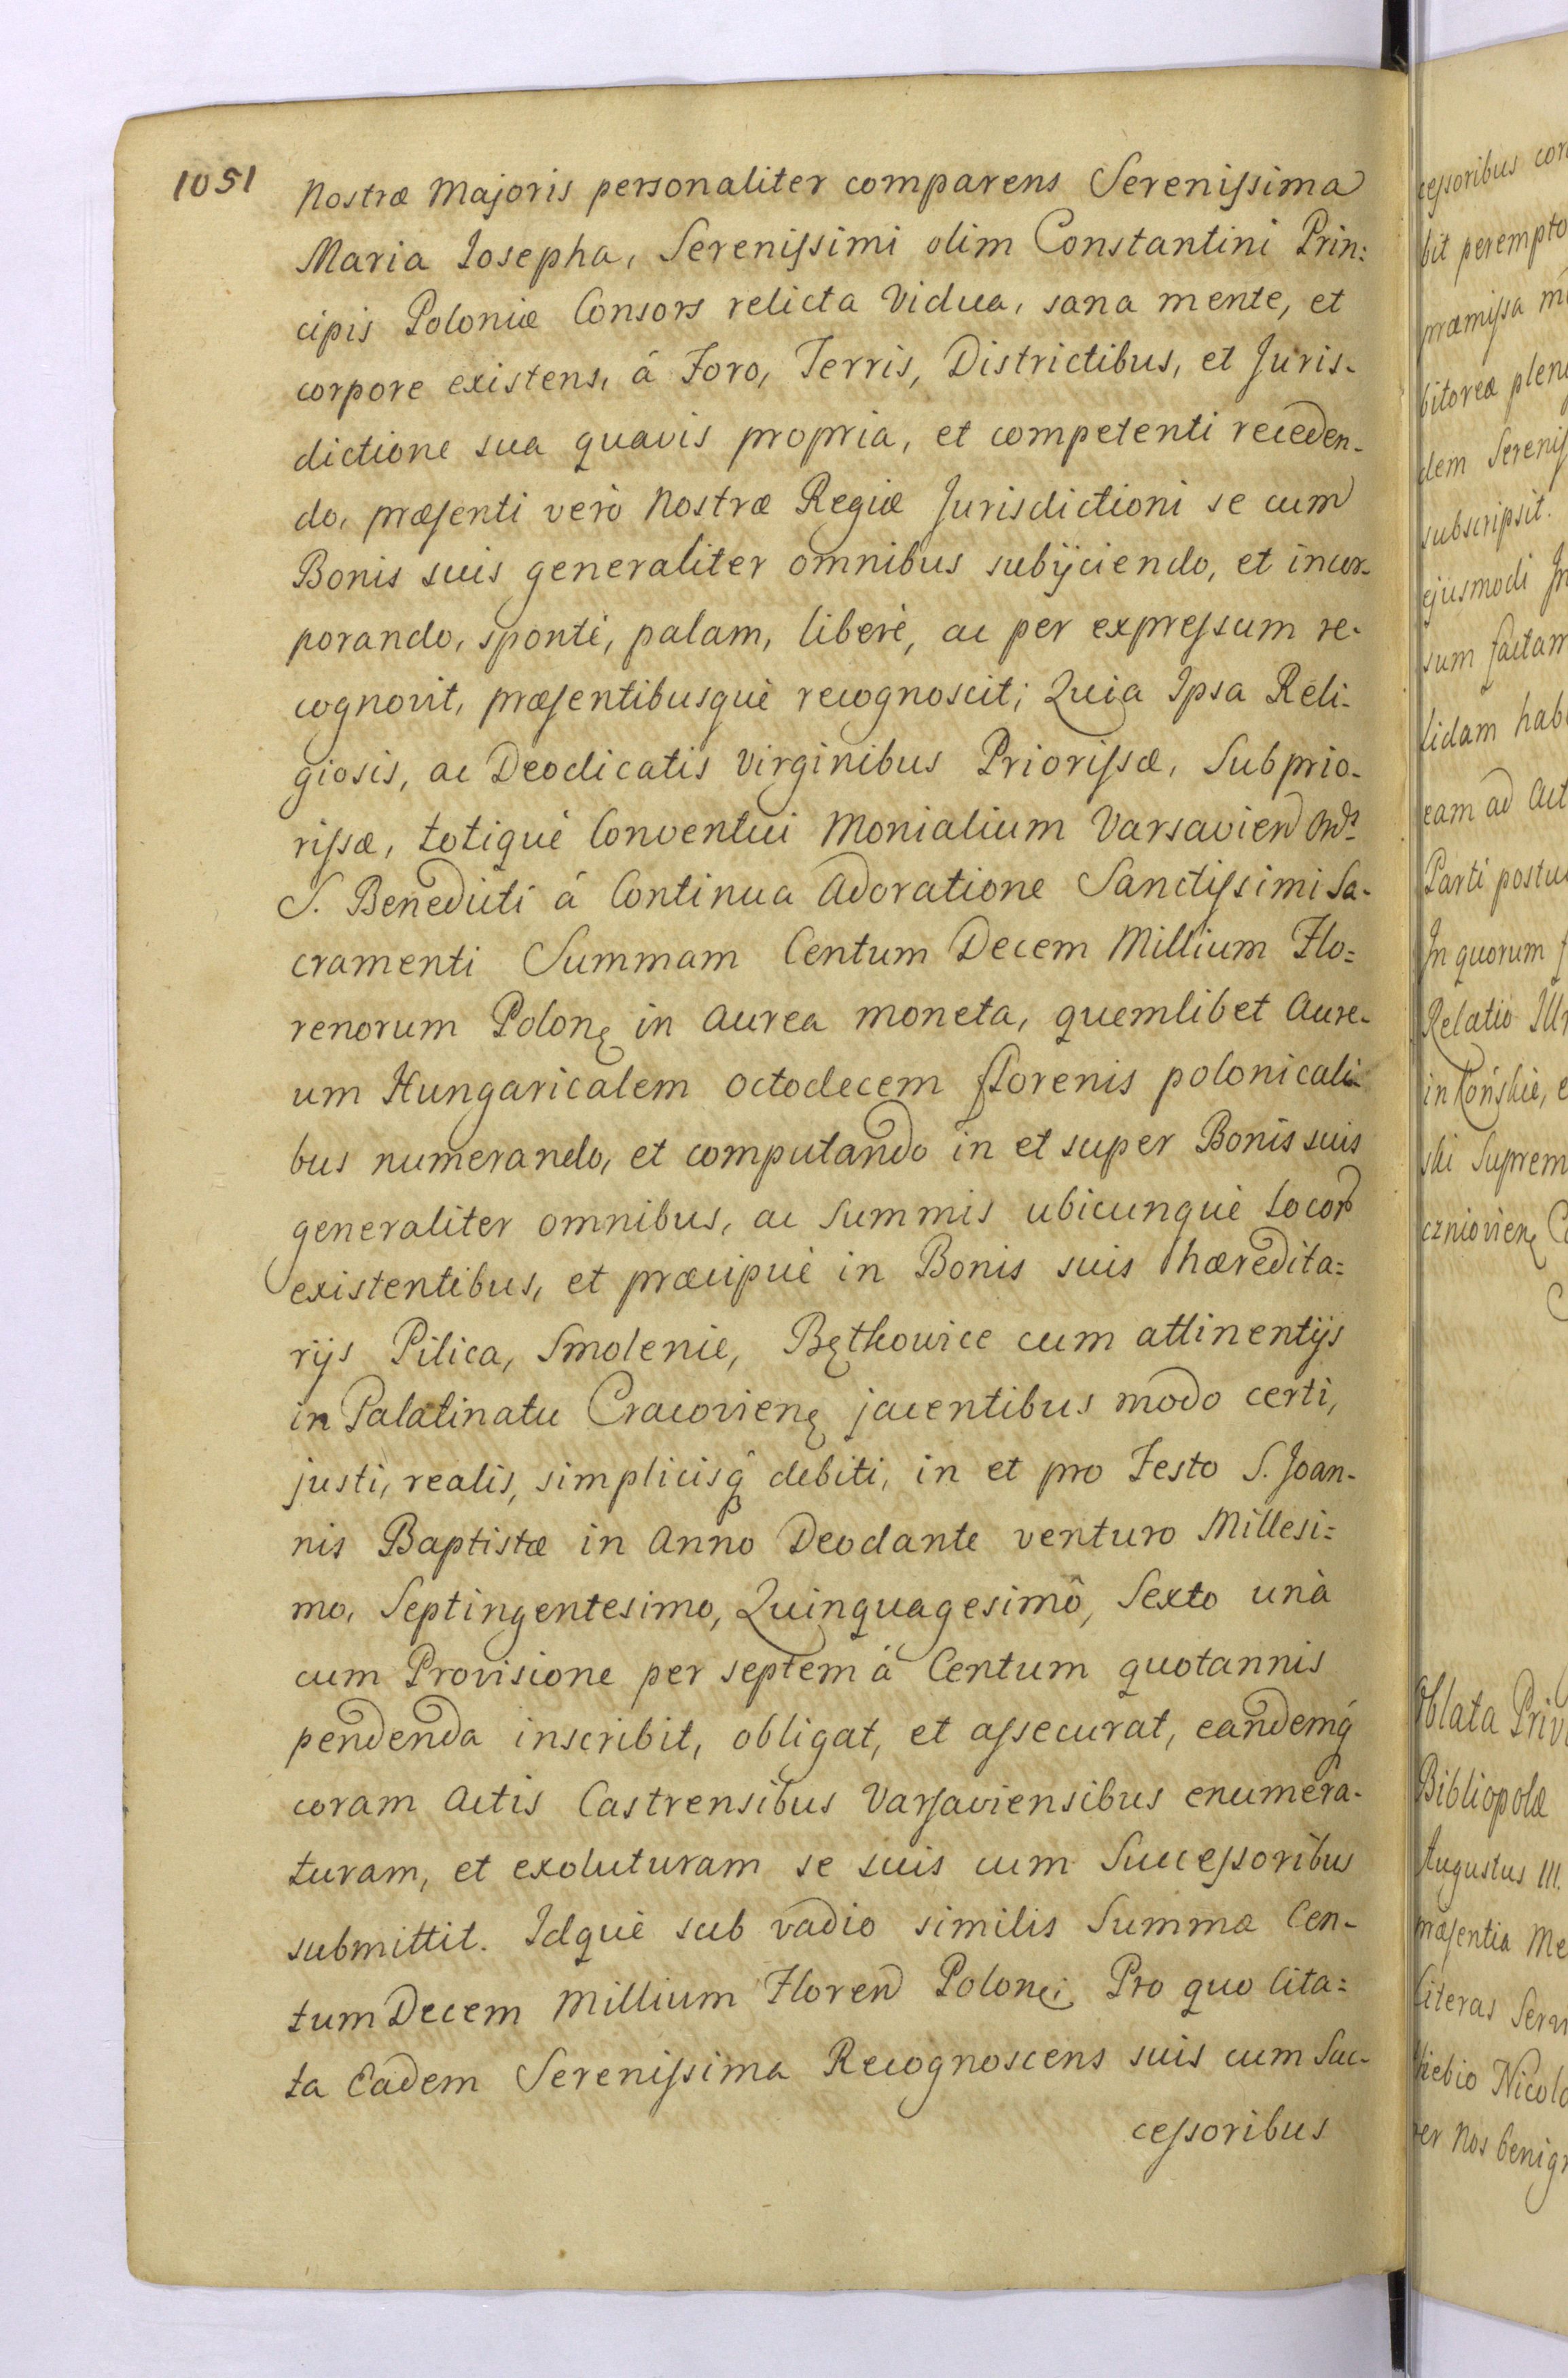 1051
Nostræ Majoris personaliter comparens Serenissima
Maria Iosepha, Serenissimi olim Constantini Prin:
cipis Poloniæ Consors relicta Vidua, sana mente, et
corpore existens, á Foro, Terris, Districtibus, et Juris-
dictione sua quavis propria, et competenti receden-
do, præsenti verò Nostræ Regiæ Jurisdictioni se cum
Bonis suis generaliter omnibus subijciendo, et incor-
porando, spontè, palam, liberè, ac per expressum re-
cognovit, præsentibusquè recognoscit; Quia Ipsa Reli-
giosis, ac Deodicatis Virginibus Priorissæ, Subprio-
rissæ, totiquè Conventui Monialium Varsavien Ordis
S. Benedicti á Continua Adoratione Sanctissimi Sa-
cramenti Summam Centum Decem Millium Flo=
renorum Polonę in Aurea moneta, quemlibet Aure-
um Hungaricalem octodecem florenis polonicali-
bus numerando, et computando in et super Bonis suis
generaliter omnibus, ac Summis ubicunquè locor
existentibus, et præcipuè in Bonis suis hæredita=
rijs Pilica, Smolenie, Bętkowice cum attinentijs
in Palatinatu Cracovienę jacentibus modo certi,
justi, realis, simplicisq̂ debiti, in et pro Festo S. Joan-
nis Baptistæ in Anno Deodante venturo Millesi=
mo, Septingentesimo, Quinquagesimô, Sexto unà
cum Provisione per septem á Centum quotannis
pendenda inscribit, obligat, et assecurat, eandemq́
coram Actis Castrensibus Varsaviensibus enumera-
turam, et exoluturam se suis cum Successoribus
submittit. Idquè sub vadio similis Summæ Cen-
tum Decem Millium Floren Polonę; Pro quo Cita=
ta Eadem Serenissima Recognoscens suis cum Suc-
cessoribus
cessoribus
bit perempto
præmissa
bitoreæ
dem Sereniss
subscripsit.
ejusmodi
sum factam
lidam
eam ad Act
Parti
In quorum
Relatio
in Końskie,
ski Suprem
cznievienę
Oblata
Bibliopolæ
Augustus III.
præsentia
Literas
Nicol
er Nos benig